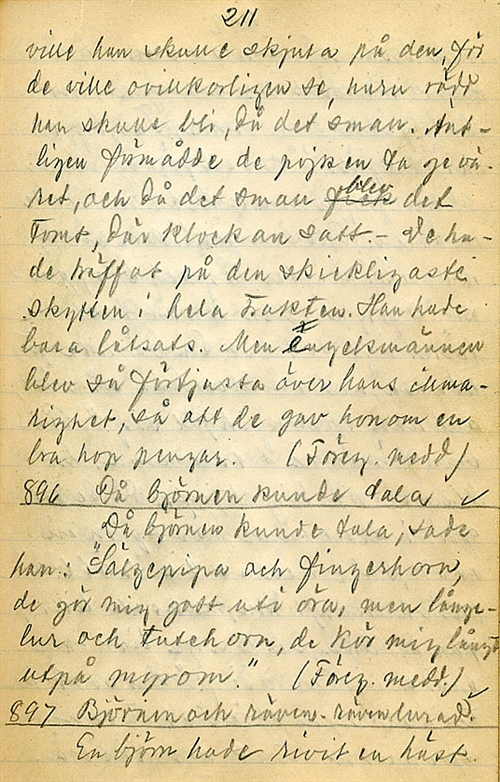 211
ville han skulle skjuta på den, för
de ville ovillkorligen se, huru rädd
han skulle bli, då det small. Änt-
ligen förmådde de pojken ta gevä-
ret, och då det small fick blev det
tomt, där klockan satt. – De ha-
de träffat på den skickligaste
skytten i hela trakten. Han hade
bara låtsats. Men Engelsmännen
blev så förtjusta över hans
så att de gav honom en
bra hop pengar. (Föreg. medd.)
896 Då björnen kunde tala ✓
Då björnen kunde tala, sade
han: "Sälgepipa och fingerhorn,
de gör mig gott uti öra, men långe-
lur och tutehorn, de kör mig långt
utpå myrom." (Föreg. medd.)
897 Björnen och räven. räven lurad. ✓
En björn hade rivit en häst.